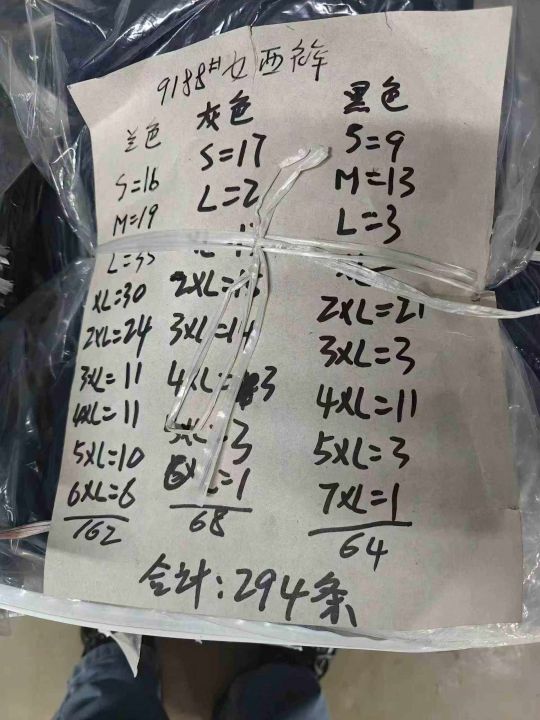 9188# 女西裤
兰色
S=16
M=19
L=35
XL=30
2XL=24
3XL=11
4XL=11
5XL=10
6XL=6
162
灰色
S=17
L=2
2XL=
3XL=14
4XL=3
5XL=3
6XL=1
68
黑色
S=9
M=13
L=3
2XL=21
3XL=3
4XL=11
5XL=3
7XL=1
64
合计:294条